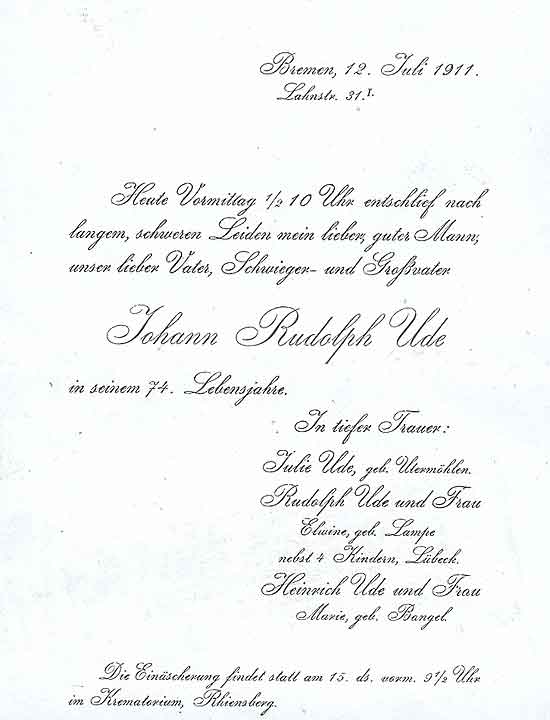 Bremen, 12. Juli 1911.
Lahnstr. 31.I.
Heute Vormittag 1/2 10 Uhr entschlief nach
langem, schweren Leiden mein lieber, guter Mann,
unser lieber Vater, Schwieger- und Großvater
Johann Rudolph Ude
in seinem 74. Lebensjahre.
In tiefer Trauer:
Julie Ude, geb. Utermöhlen.
Rudolph Ude und Frau
Elwine, geb. Lampe
nebst 4 Kindern, Lübeck.
Heinrich Ude und Frau
Marie, geb. Bangel.
Die Einäscherung findet statt am 15. ds. vorm. 9 1/2 Uhr
im Krematorium, Rhiensberg.